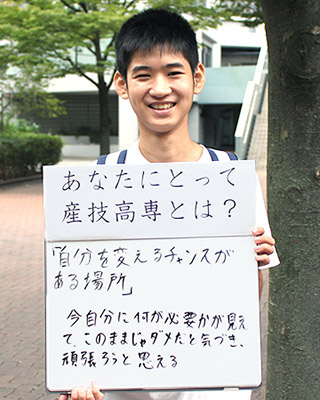 あなたにとって
産技高専とは？
「自分を変えるチャンスが
ある場所」
今自分に何が必要かが見え
て、このままじゃダメだと気づき、
頑張ろうと思える